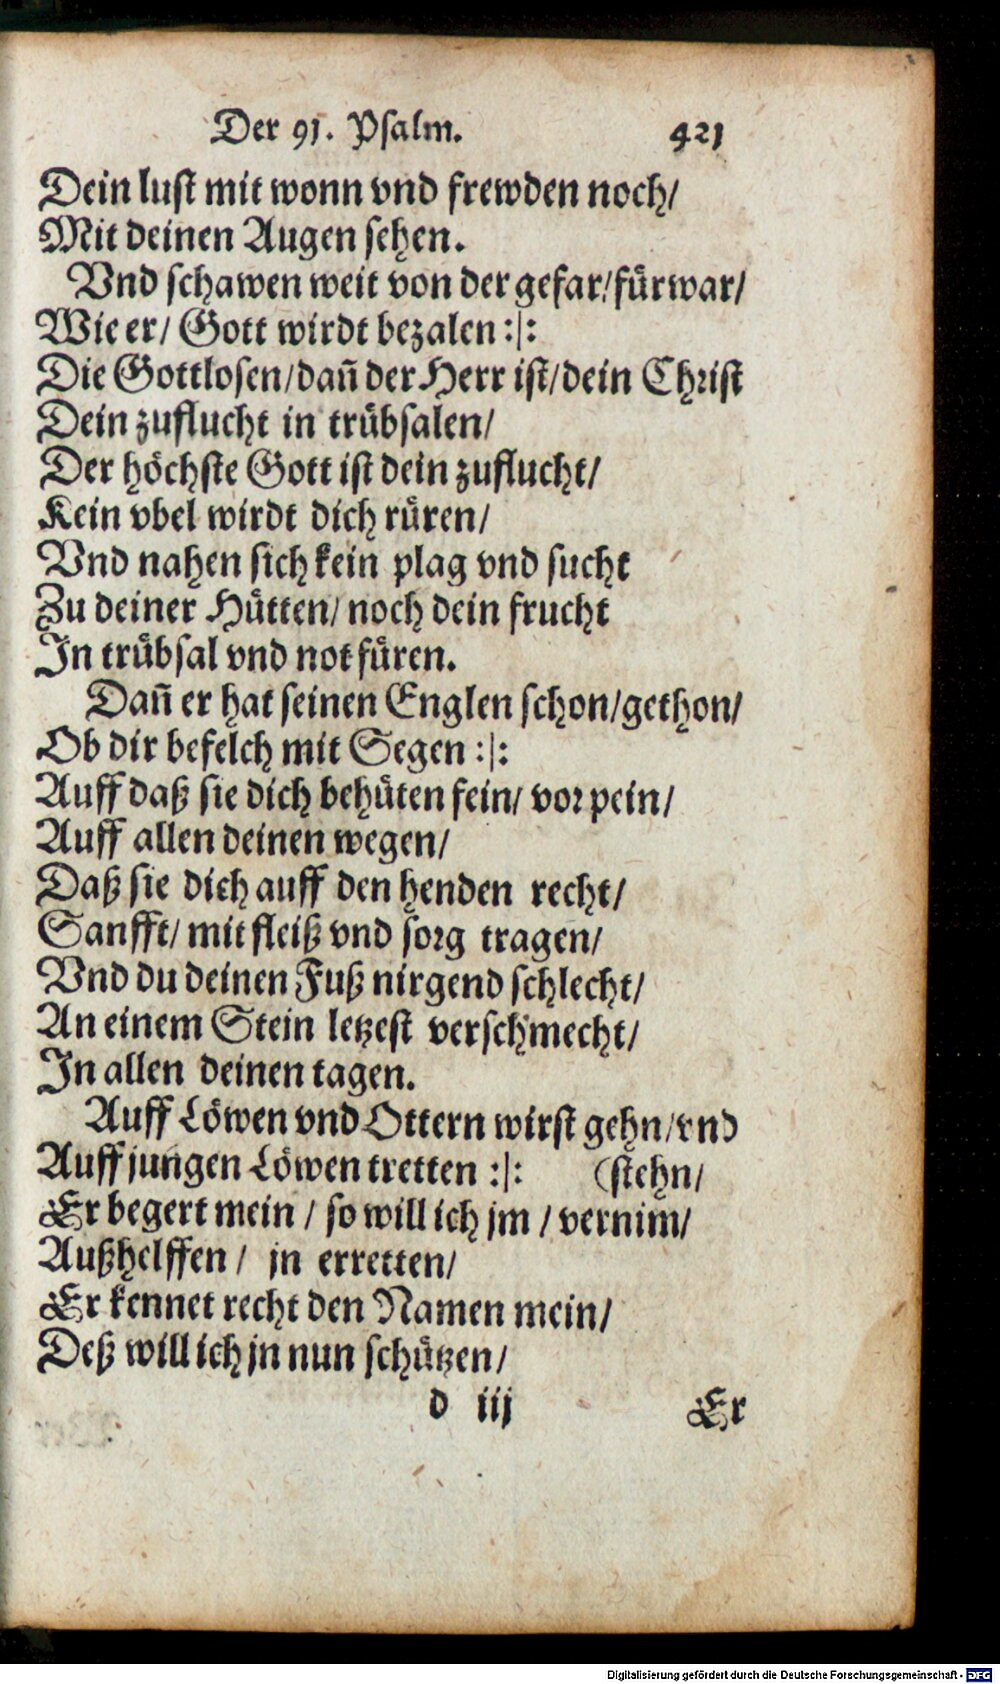 Der 91. Psalm. 421
Dein lust mit wonn vnd frewden noch/
Mit deinen Augen sehen.
Vnd schawen weit von der gefar/fürwar/
Wie er/ Gott wirdt bezalen :|:
Die Gottlosen/dañ der Herr ist/dein Christ
Dein zuflucht in trübsalen/
Der höchste Gott ist dein zuflucht/
Kein vbel wirdt dich rüren/
Vnd nahen sich kein plag vnd sucht
Zu deiner Hütten/ noch dein frucht
In trübsal vnd not füren.
Dañ er hat seinen Englen schon/gethon/
Ob dir befelch mit Segen :|:
Auff daß sie dich behüten fein/ vor pein/
Auff allen deinen wegen/
Daß sie dich auff den henden recht/
Sanfft/ mit fleiß vnd sorg tragen/
Vnd du deinen Fuß nirgend schlecht/
An einem Stein letzest verschmecht/
In allen deinen tagen.
Auff Löwen vnd Ottern wirst gehn/vnd
Auff jungen Löwen tretten :|: (stehn/
Er begert mein / so will ich jm / vernim/
Außhelffen / jn erretten/
Er kennet recht den Namen mein/
Deß will ich jn nun schützen/
d iij Er
Digitalisierung gefördert durch die Deutsche Forschungsgemeinschaft - DFG